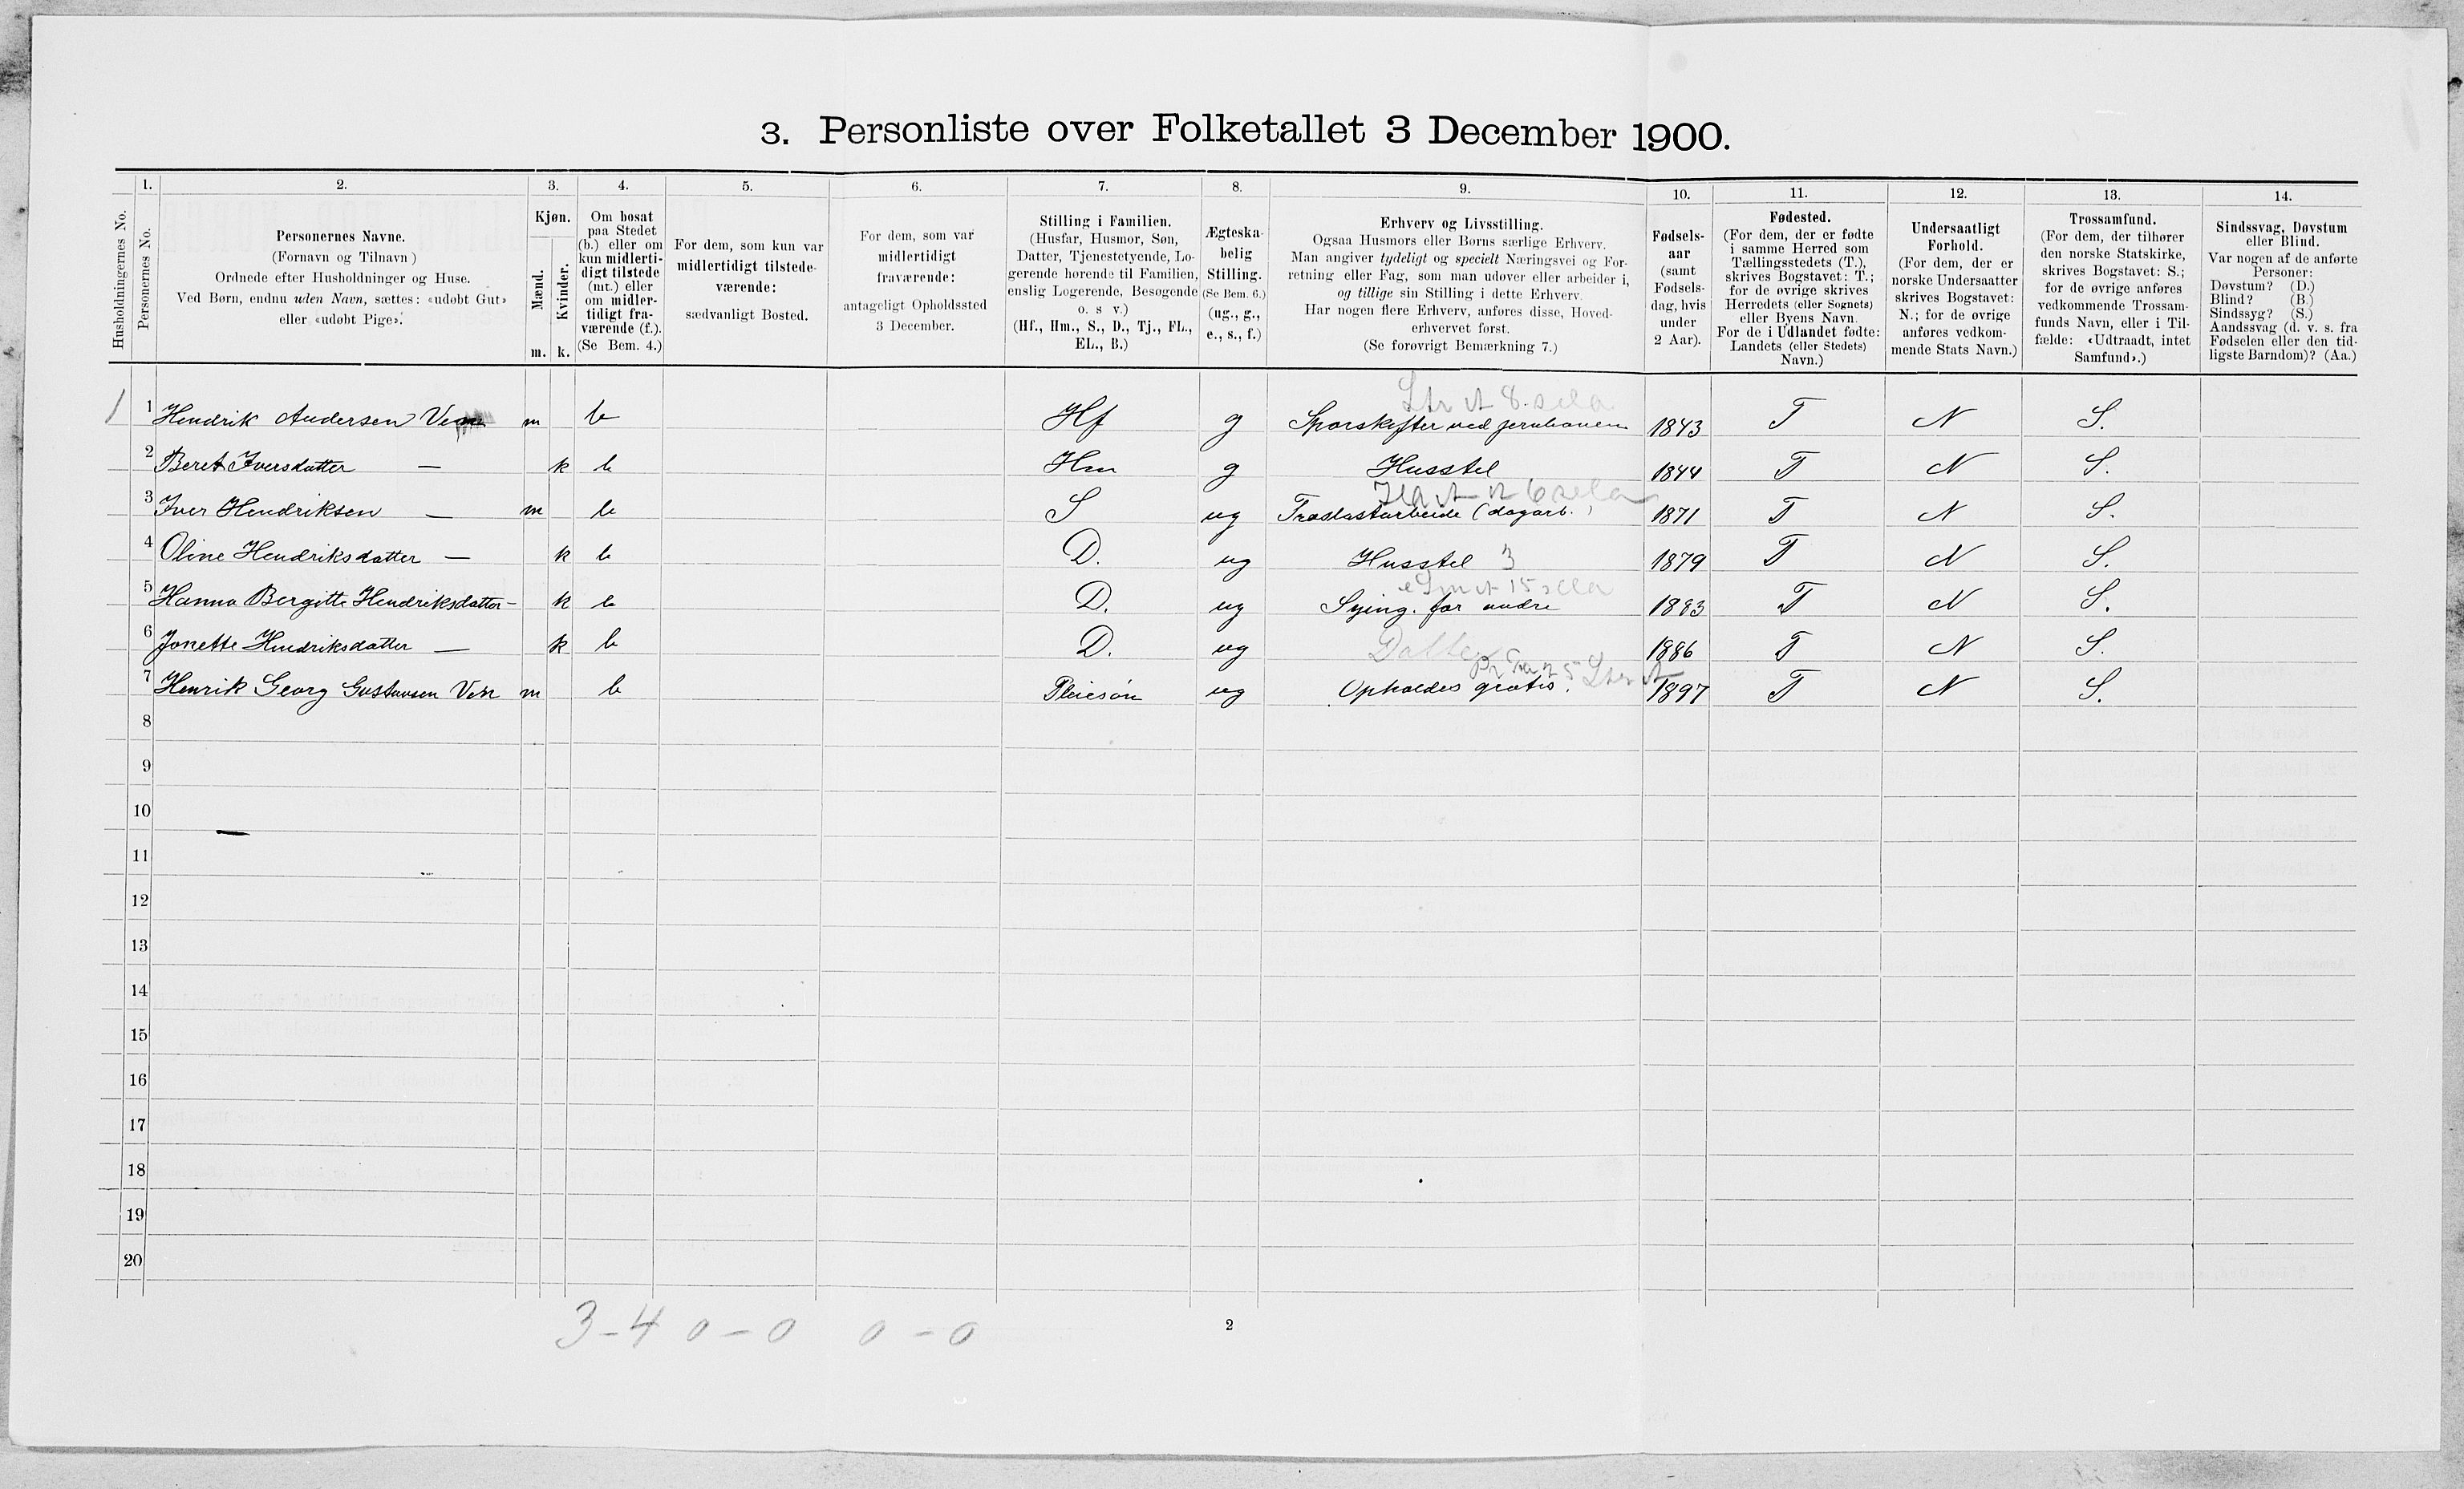 3. Personliste over Folketallet 3 December 1900.
1. 2. 3. 4. 5. 6. 7. 8. 9. 10. 11. 12. 13. 14.
Husholdningernes No.
Personernes No.
Personernes Navne.
(Fornavn og Tilnavn)
Ordnede efter Husholdninger og Huse.
Ved Børn, endnu uden Navn, sættes: «udøbt Gut»
eller «udøbt Pige».
Kjøn.
Mænd.
Kvinder.
m. k.
Om bosat
paa Stedet
(b.) eller om
kun midlerti-
digt tilstede
(mt.) eller
om midler-
tidigt fra-
værende (f.).
(Se Bem. 4.)
For dem, som kun var
midlertidigt tilstede-
værende:
sædvanligt Bosted.
For dem, som var
midlertidigt
fraværende:
antageligt Opholdssted
3 December.
Stilling i Familien.
(Husfar, Husmor, Søn,
Datter, Tjenestetyende, Lo-
gerende hørende til Familien,
enslig Logerende, Besøgende
o. s v.)
(Hf., Hm., S., D., Tj., FL.,
EL., B.)
Ægteska-
belig
Stilling.
(Se Bem. 6.)
(ug., g.,
e., s., f.)
Erhverv og Livsstilling.
Ogsaa Husmors eller Børns særlige Erhverv.
Man angiver tydeligt og specielt Næringsvei og For-
retning eller Fag, som man udøver eller arbeider i,
og tillige sin Stilling i dette Erhverv.
Har nogen flere Erhverv, anføres disse, Hoved-
erhvervet først.
(Se forøvrigt Bemærkning 7.)
Fødsels-
aar
(samt
Fødsels-
dag, hvis
under
2 Aar).
Fødested.
(For dem, der er fødte
i samme Herred som
Tællingsstedets (T.),
skrives Bogstavet: T.;
for de øvrige skrives
Herredets (eller Sognets)
eller Byens Navn.
For de i Udlandet fødte:
Landets (eller Stedets)
Navn.)
Undersaatligt
Forhold.
(For dem, der er
norske Undersaatter
skrives Bogstavet:
N.; for de øvrige
anføres vedkom-
mende Stats Navn.)
Trossamfund.
(For dem, der tilhører
den norske Statskirke,
skrives Bogstavet: S.;
for de øvrige anføres
vedkommende Trossam-
funds Navn, eller i Til-
fælde: «Udtraadt, intet
Samfund».)
Sindssvag, Døvstum
eller Blind.
Var nogen af de anførte
Personer:
Døvstum? (D.)
Blind? (B.)
Sindssyg? (S.)
Aandssvag (d. v. s. fra
Fødselen eller den tid-
ligste Barndom)? (Aa.)
1 1 Hendrik Andersen m b Hf g Sporskifter ved jernbanen 1843 T N S.
2 Beret Iversdatter — k b Hm g Husstel 1844 T N S.
3 Iver Hendriksen — m b S ug Trælastarbeide (dagarb.) 1871 T N S.
4 Oline Hendriksdatter — k b D. ug Husstel 3 1879 T N S.
5 Hanna Bergitte Hendriksdatter - k b D. ug Sying. for andre 1883 T N S.
6 Jonette Hendriksdatter — k b D. ug Datter 1886 T N S.
7 Henrik Georg Gustavsen m b Pleiesøn ug Opholdes gratis. 1897 T N S.
8
9
10
11
12
13
14
15
16
17
18
19
20
3-4 0-0 0-0
2